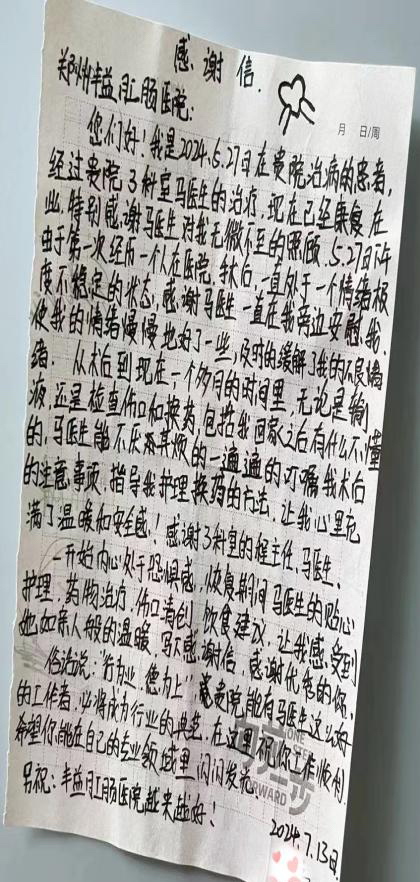 感谢信.
月 日/周
郑州丰益肛肠医院:
您们好!我是2024.5.27日在贵院治病的患者,
经过贵院3科室马医生的治疗,现在已经康复,在
此,特别感谢马医生对我无微不至的照顾,5.27日下午
由于第一次经历一个人在医院,手术后,一直处于一个情绪极
度不稳定的状态,感谢马医生一直在我旁边安慰我.
使我的情绪慢慢地好了一些,及时的缓解了我的不良情
绪. 从术后到现在一个多月的时间里,无论是输
液,还是检查伤口和换药,包括我回家之后有什么不懂
的,马医生能不厌其烦的一遍遍的叮嘱我术后
的注意事项,指导我护理换药的方法,让我心里充
满了温暖和安全感!感谢3科室的程主任、马医生、
开始内心处于恐惧感,恢复期间马医生的贴心
护理、药物治疗、伤口清创、饮食建议,让我感受到
她如亲人般的温暖,写下感谢信,感谢优秀的你.
俗话说:"行为业,德为上",贵院能有马医生这么好
的工作者,必将成为行业的典范,在这里祝你工作顺利.
希望你能在自己的专业领域里闪闪发光.
另祝:丰益肛肠医院越来越好!
ONE
FORWARD
2024.7.13日.